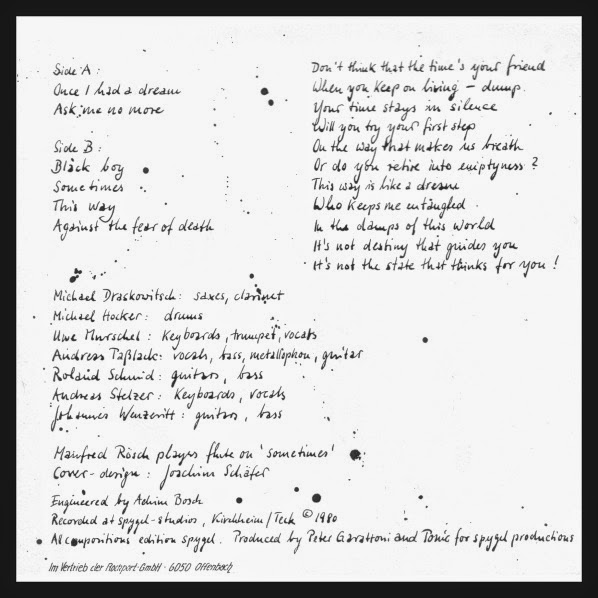 Side A :
Once I had a dream
Ask me no more
Side B :
Black boy
Sometimes
This way
Against the fear of death
Don't think that the time's your friend
When you keep on living - dump.
Your time stays in silence
Will you try your first step
On the way that makes us breath
Or do you retire into emptyness ?
This way is like a dream
Who keeps me entangled
In the damps of this world
It's not destiny that guides you
It's not the state that thinks for you !
Michael Draskowitsch : saxes, clarinet
Michael Hocker : drums
Uwe Murschel : keyboards, trumpet, vocals
Andreas Taßlack : vocals, bass, metallophon, guitar
Roland Schmid : guitars, bass
Andreas Stelzer : keyboards, vocals
Johannes Wenzeritt : guitars, bass
Manfred Rösch played flute on 'sometimes'
Cover-design : Joachim Schäfer
Engineered by Achim Bosch
Recorded at spygel-studios, Kirchheim/Teck © 1980
All compositions edition spygel. Produced by Peter Garattoni and Tonic for spygel productions
Im Vertrieb der Rockport-GmbH · 6050 Offenbach